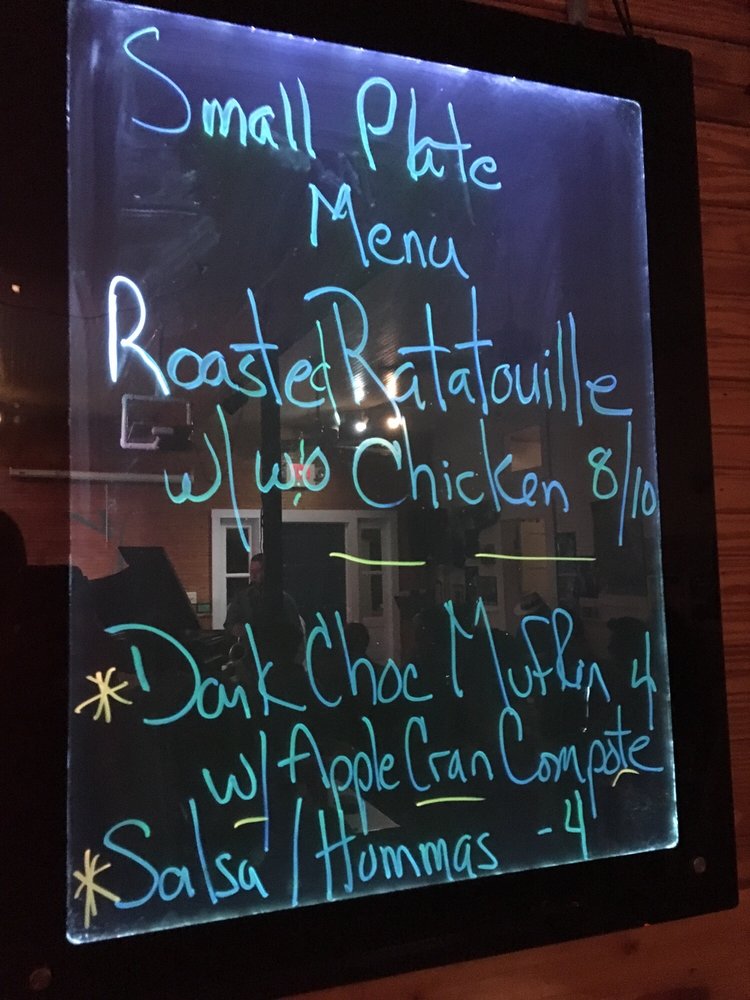 Small Plate
Menu
Roasted Ratatouille
w/ w/o Chicken 8/10
* Dark Choc Muffin 4
w/ Apple Cran Compote
* Salsa / Hummas - 4